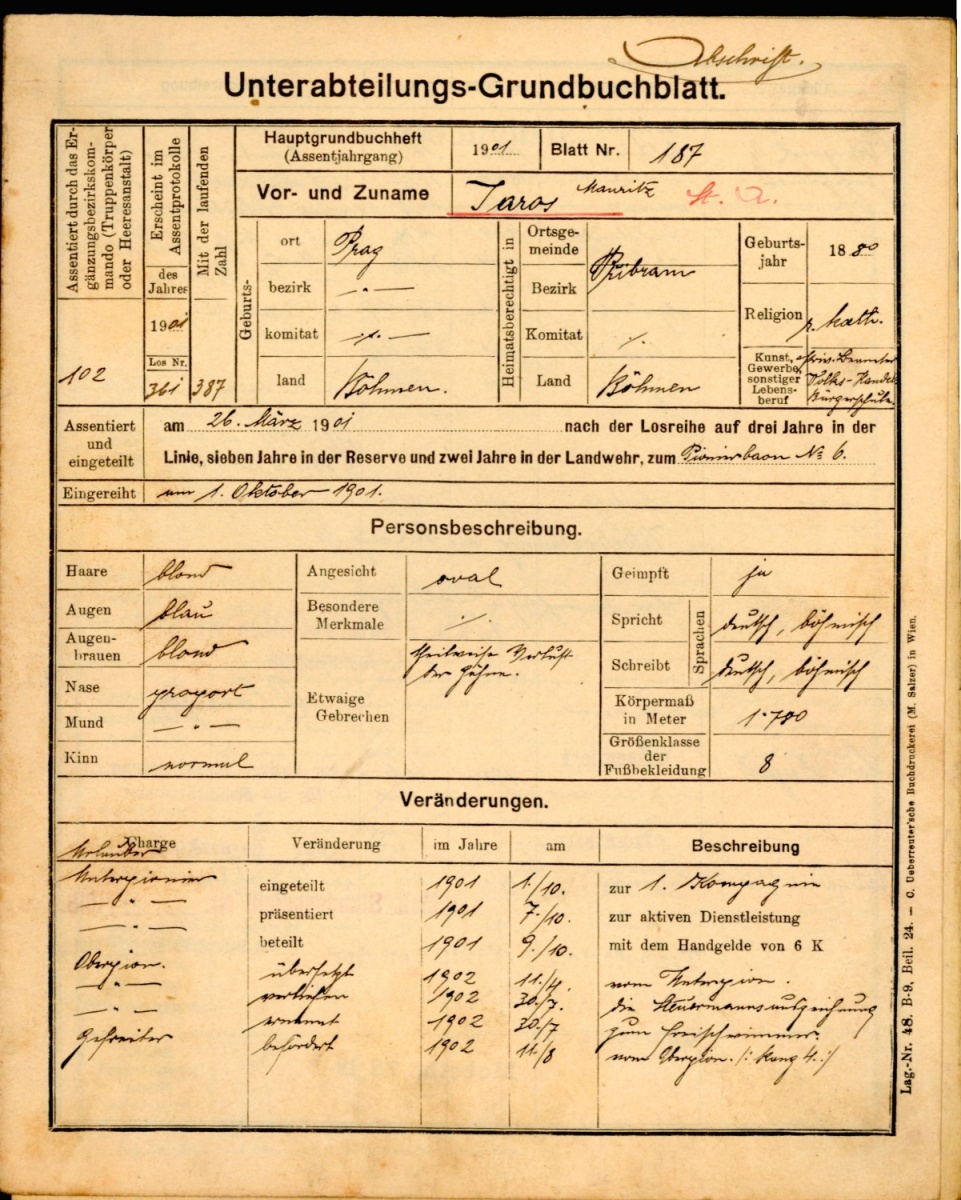 Abschrift.
Unterabteilungs-Grundbuchblatt.
Assentiert durch das Er-
gänzungsbezirkskom-
mando (Truppenkörper
oder Heeresanstalt)
102
Erscheint im
Assentprotokolle
des
Jahres
1901
Los Nr.
361
Mit der laufenden
Zahl
387
Hauptgrundbuchheft
(Assentjahrgang)
1901
Blatt Nr.
187
Vor- und Zuname
Jaros Mauritz
St. A.
Geburts-
ort
Prag
bezirk
— " —
komitat
—  .  —
land
Böhmen.
Heimatsberechtigt in
Ortsge-
meinde
Přibram
Bezirk
Komitat
Land
Böhmen
Geburts-
jahr
1880
Religion
r. kath.
Kunst,
Gewerbe,
sonstiger
Lebens-
beruf
Priv. Beamter
Volks- Handels
Bürgerschule
Assentiert
und
eingeteilt
am 26. März 1901 nach der Losreihe auf drei Jahre in der
Linie, sieben Jahre in der Reserve und zwei Jahre in der Landwehr, zum Pionierbaon No 6.
Eingereiht am 1. Oktober 1901.
Personsbeschreibung.
Haare blond
Augen blau
Augen-
brauen blond
Nase proport
Mund — " —
Kinn normal
Angesicht oval
Besondere
Merkmale
Etwaige
Gebrechen
theilweise Verlust
der Zähne.
Geimpft ja
Spricht deutsch, böhmisch
Sprachen
Schreibt deutsch, böhmisch
Körpermaß
in Meter 1·780
Größenklasse
der
Fußbekleidung 8
Veränderungen.
Charge Veränderung im Jahre am Beschreibung
Urlauber
Unterpionier eingeteilt 1901 1./10. zur 1. Kompagnie
— " — präsentiert 1901 7./10. zur aktiven Dienstleistung
— " — beteilt 1901 9./10. mit dem Handgelde von 6 K
Oberpion. übersetzt 1902 11./4. vom Unterpion.
— " — verliehen 1902 30./7. die Steuermannsauszeichnung
— " — ernannt 1902 30./7 zum Freischwimmer.
Gefreiter befördert 1902 11./8 vom Oberpion. /: Rang 4. :/
Lag.-Nr. 48. B-9, Beil. 24. — C. Ueberreuter'sche Buchdruckerei (M. Salzer) in Wien.